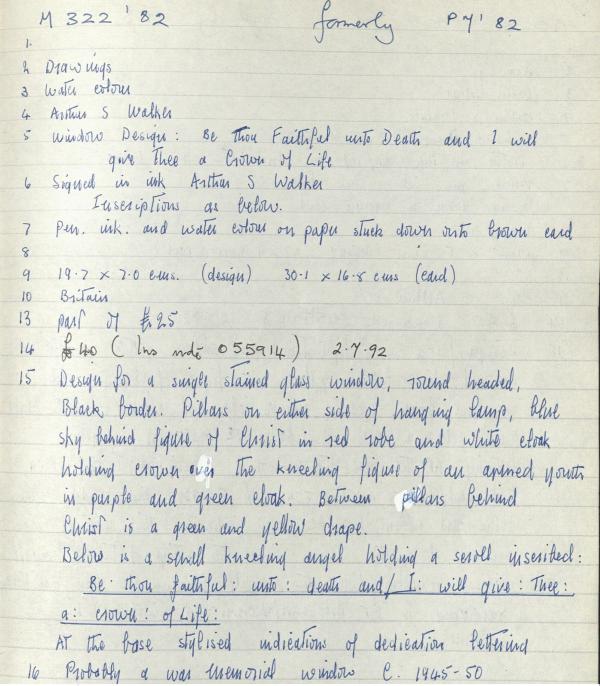 M 322 '82 formerly P 7' 82
1.
2 Drawings
3 Water colour
4 Arthur S Walker
5 Window Design: Be thou Faithful unto Death and I will
give thee a Crown of Life
6 Signed in ink Arthur S Walker
Inscriptions as below.
7 Pen. ink. and water colour on paper stuck down onto brown card
8
9 19.7 x 7.0 cms. (design) 30.1 x 16.8 cms (card)
10 Britain
13 part of £25
14 £40 (Ins note 055914) 2.7.92
15 Design for a single stained glass window, round headed,
Black border. Pillars on either side of hanging lamp, blue
sky behind figure of Christ in red robe and white cloak
holding crown over the kneeling figure of an armed youth
in purple and green cloak. Between pillars behind
Christ is a green and yellow drape.
Below is a small kneeling angel holding a scroll inscribed:
Be thou faithful: unto: death and/I: will give: Thee:
a: crown: of Life:
At the base stylised indications of dedication lettering
16 Probably a war memorial window C. 1945-50